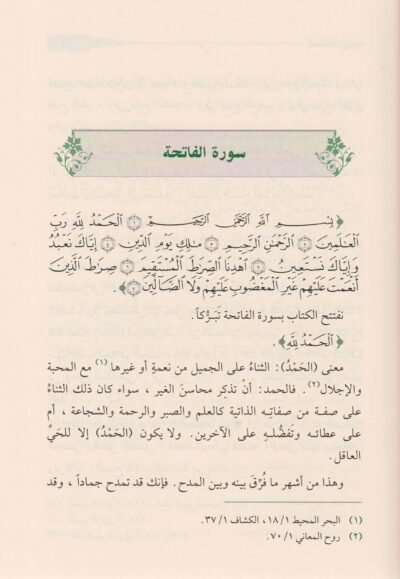 سورة الفاتحة
﴿ بِسْمِ اللَّهِ الرَّحْمَٰنِ الرَّحِيمِ ۝١ الْحَمْدُ لِلَّهِ رَبِّ
الْعَالَمِينَ ۝٢ الرَّحْمَٰنِ الرَّحِيمِ ۝٣ مَالِكِ يَوْمِ الدِّينِ ۝٤ إِيَّاكَ نَعْبُدُ
وَإِيَّاكَ نَسْتَعِينُ ۝٥ اهْدِنَا الصِّرَاطَ الْمُسْتَقِيمَ ۝٦ صِرَاطَ الَّذِينَ
أَنْعَمْتَ عَلَيْهِمْ غَيْرِ الْمَغْضُوبِ عَلَيْهِمْ وَلَا الضَّالِّينَ ۝٧ ﴾.
نفتتح الكتاب بسورة الفاتحة تَبَرُّكاً.
﴿ الْحَمْدُ لِلَّهِ ﴾.
معنى (الحَمْدُ): الثناءُ على الجميل من نعمةٍ أو غيرها (١) مع المحبة
والإجلال (٢). فالحمد: أن تذكر محاسنَ الغير ، سواء كان ذلك الثناءُ
على صفة من صفاتِه الذاتية كالعلم والصبر والرحمة والشجاعة ، أم
على عطائه وتَفضُّلهِ على الآخرين. ولا يكون (الحَمْدُ) إلا للحَيِّ
العاقل.
وهذا من أشهر ما فُرِّقَ بينه وبين المدح. فإنك قد تمدح جماداً ، وقد
(١) البحر المحيط ١/ ١٨، الكشاف ١/ ٣٧.
(٢) روح المعاني ١/ ٧٠.